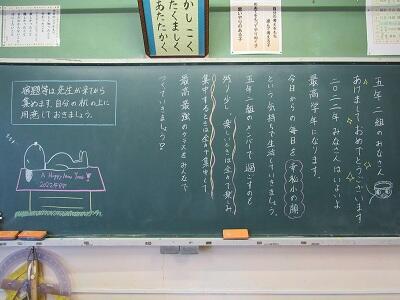 かしこく
たくましく
あたたかく
五年二組のみなさん
あけましておめでとうございます
二〇二二年みなさんはいよいよ
最高学年になります。
今日からの毎日を
という気持ちで生活していきましょう。
五年二組のメンバーで過ごすのも
残り少し。楽しむときは全力で楽しみ
集中するときは全力で集中して
最高最強のクラスをみんなで
つくっていきましょう♡
宿題等は先生が来てから
集めます。自分の机の上に
用意しておきましょう。
A Happy New Year